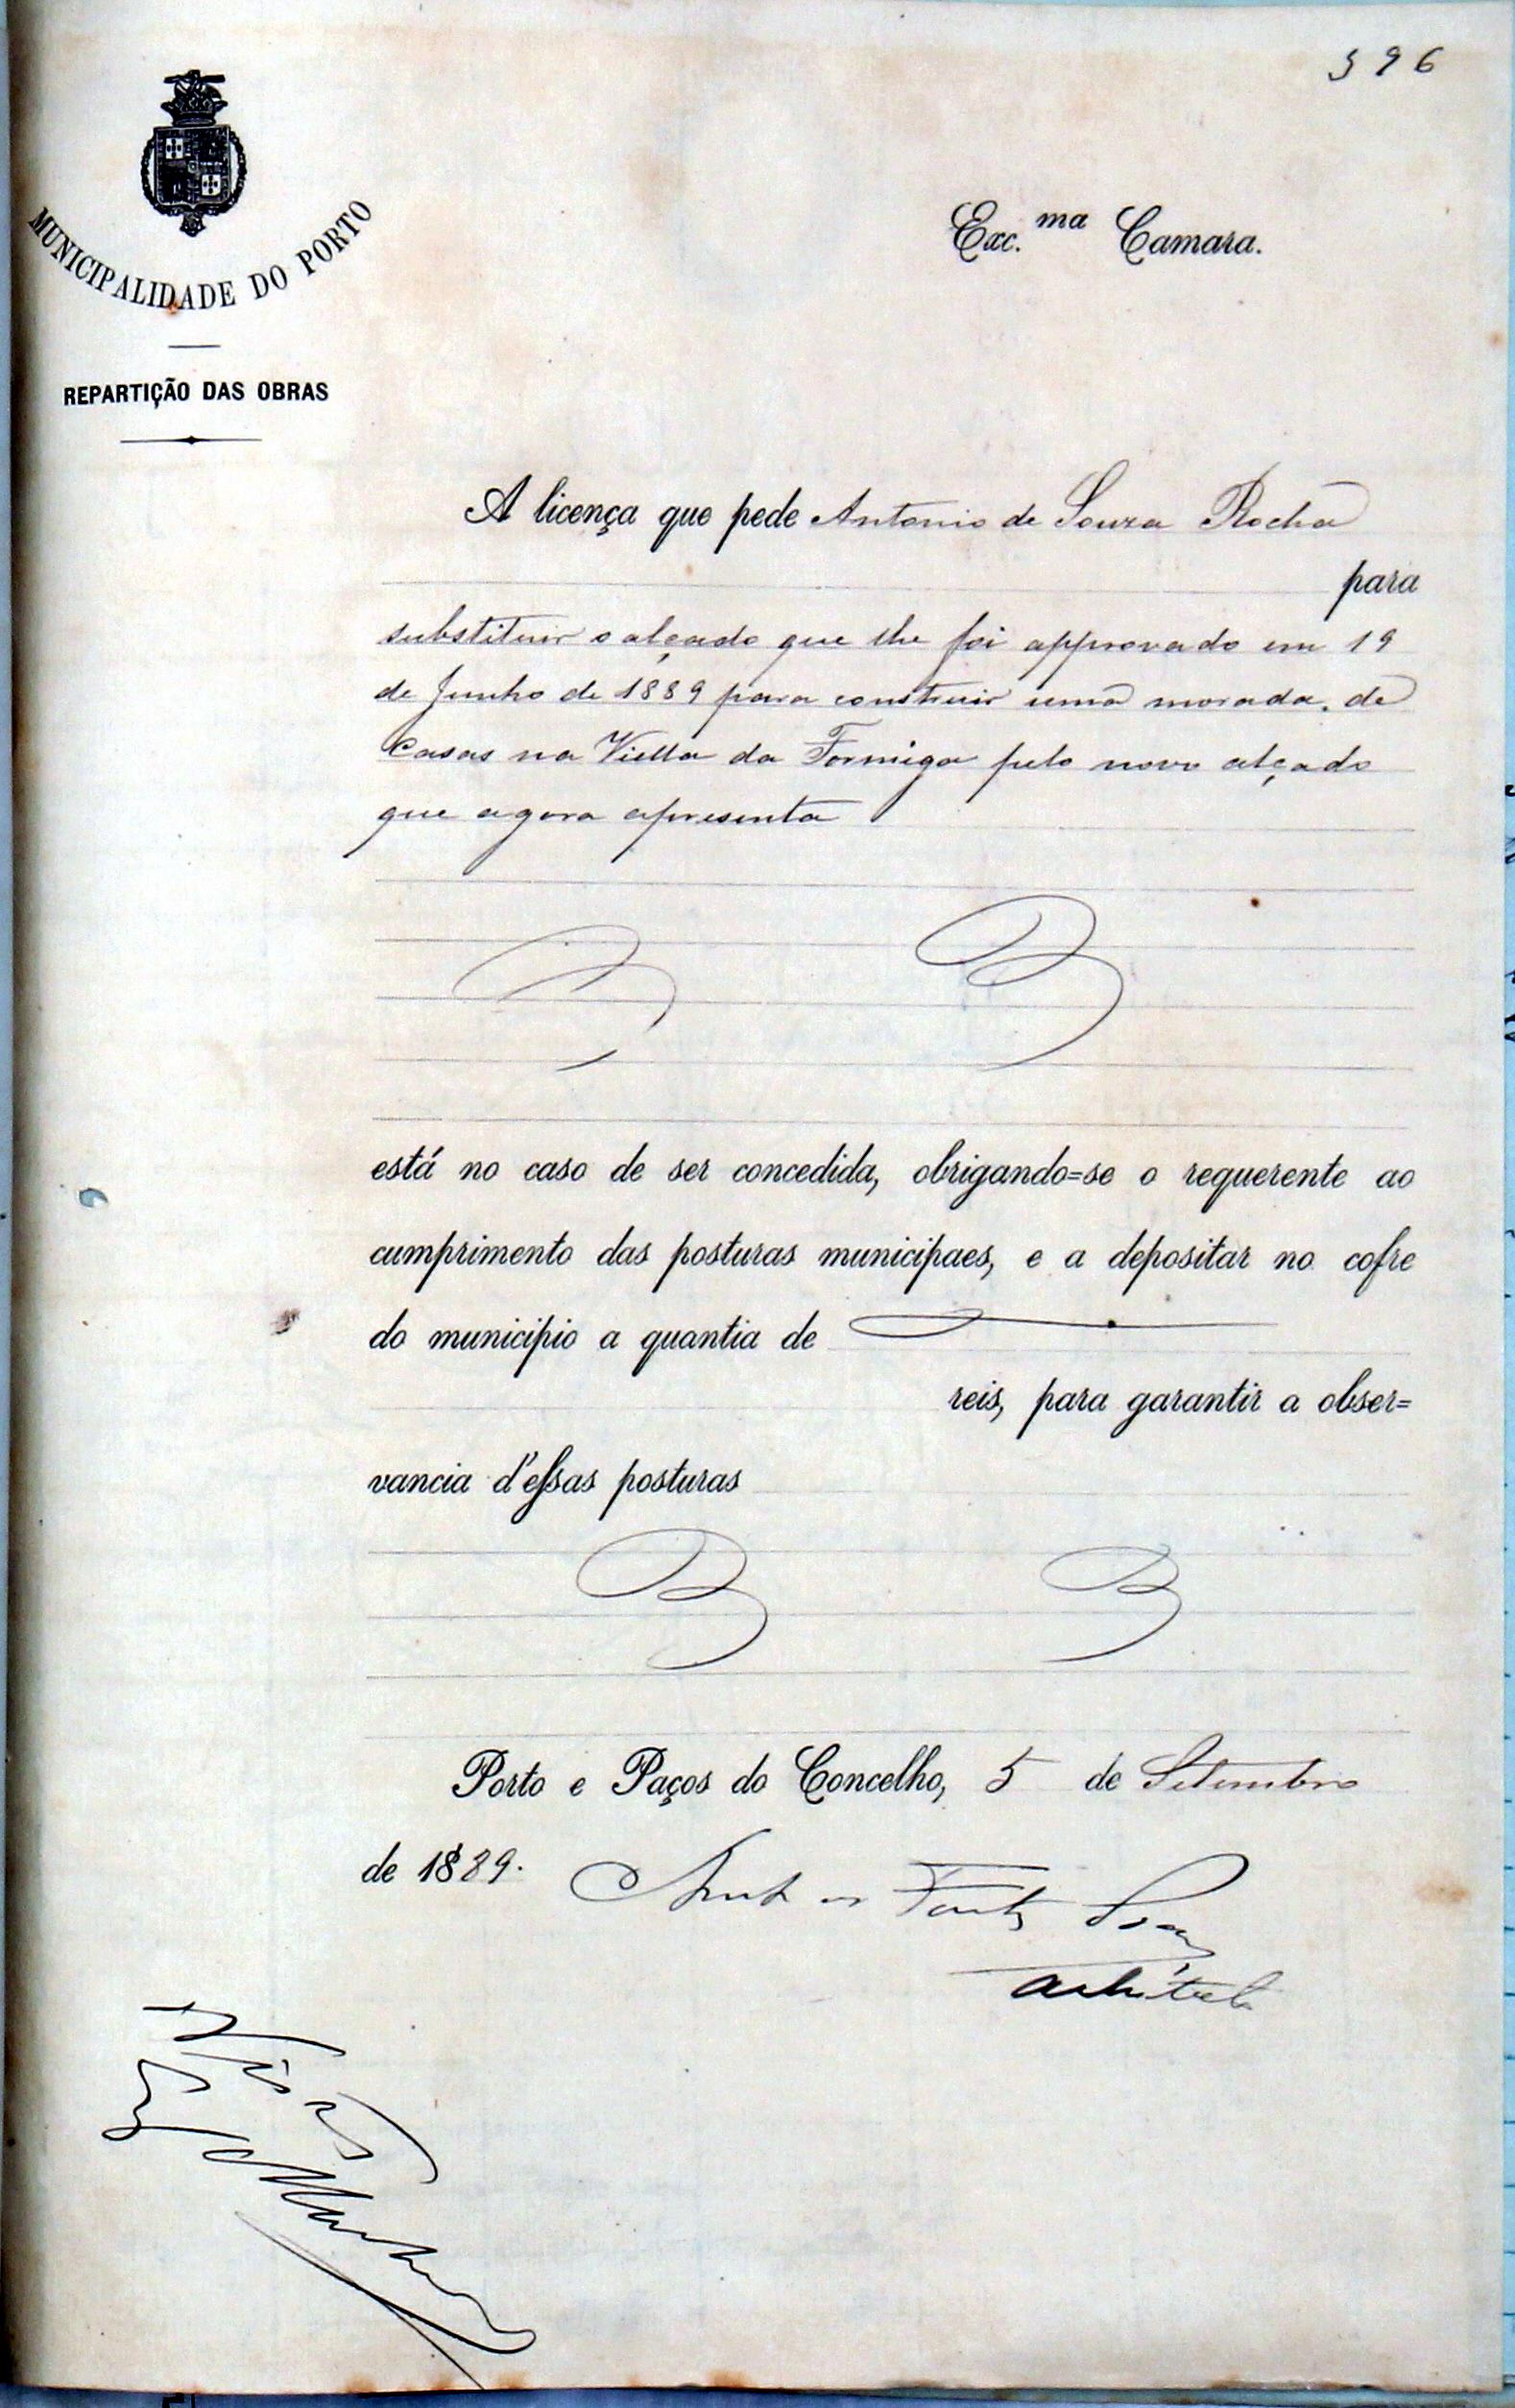 396
MUNICIPALIDADE DO PORTO
REPARTIÇÃO DAS OBRAS
Exc.ma Camara.
A licença que pede Antonio de Souza Rocha
para
substituir o alçado que lhe foi approvado em 19
de Junho de 1889 para construir uma morada de
Casas na Viella da Formiga pelo novo alçado
que agora apresenta
está no caso de ser concedida, obrigando=se o requerente ao
cumprimento das posturas municipaes, e a depositar no cofre
do municipio a quantia de
reis, para garantir a obser=
vancia d'essas posturas
Porto e Paços do Concelho, 5 de Setembro
de 1889.